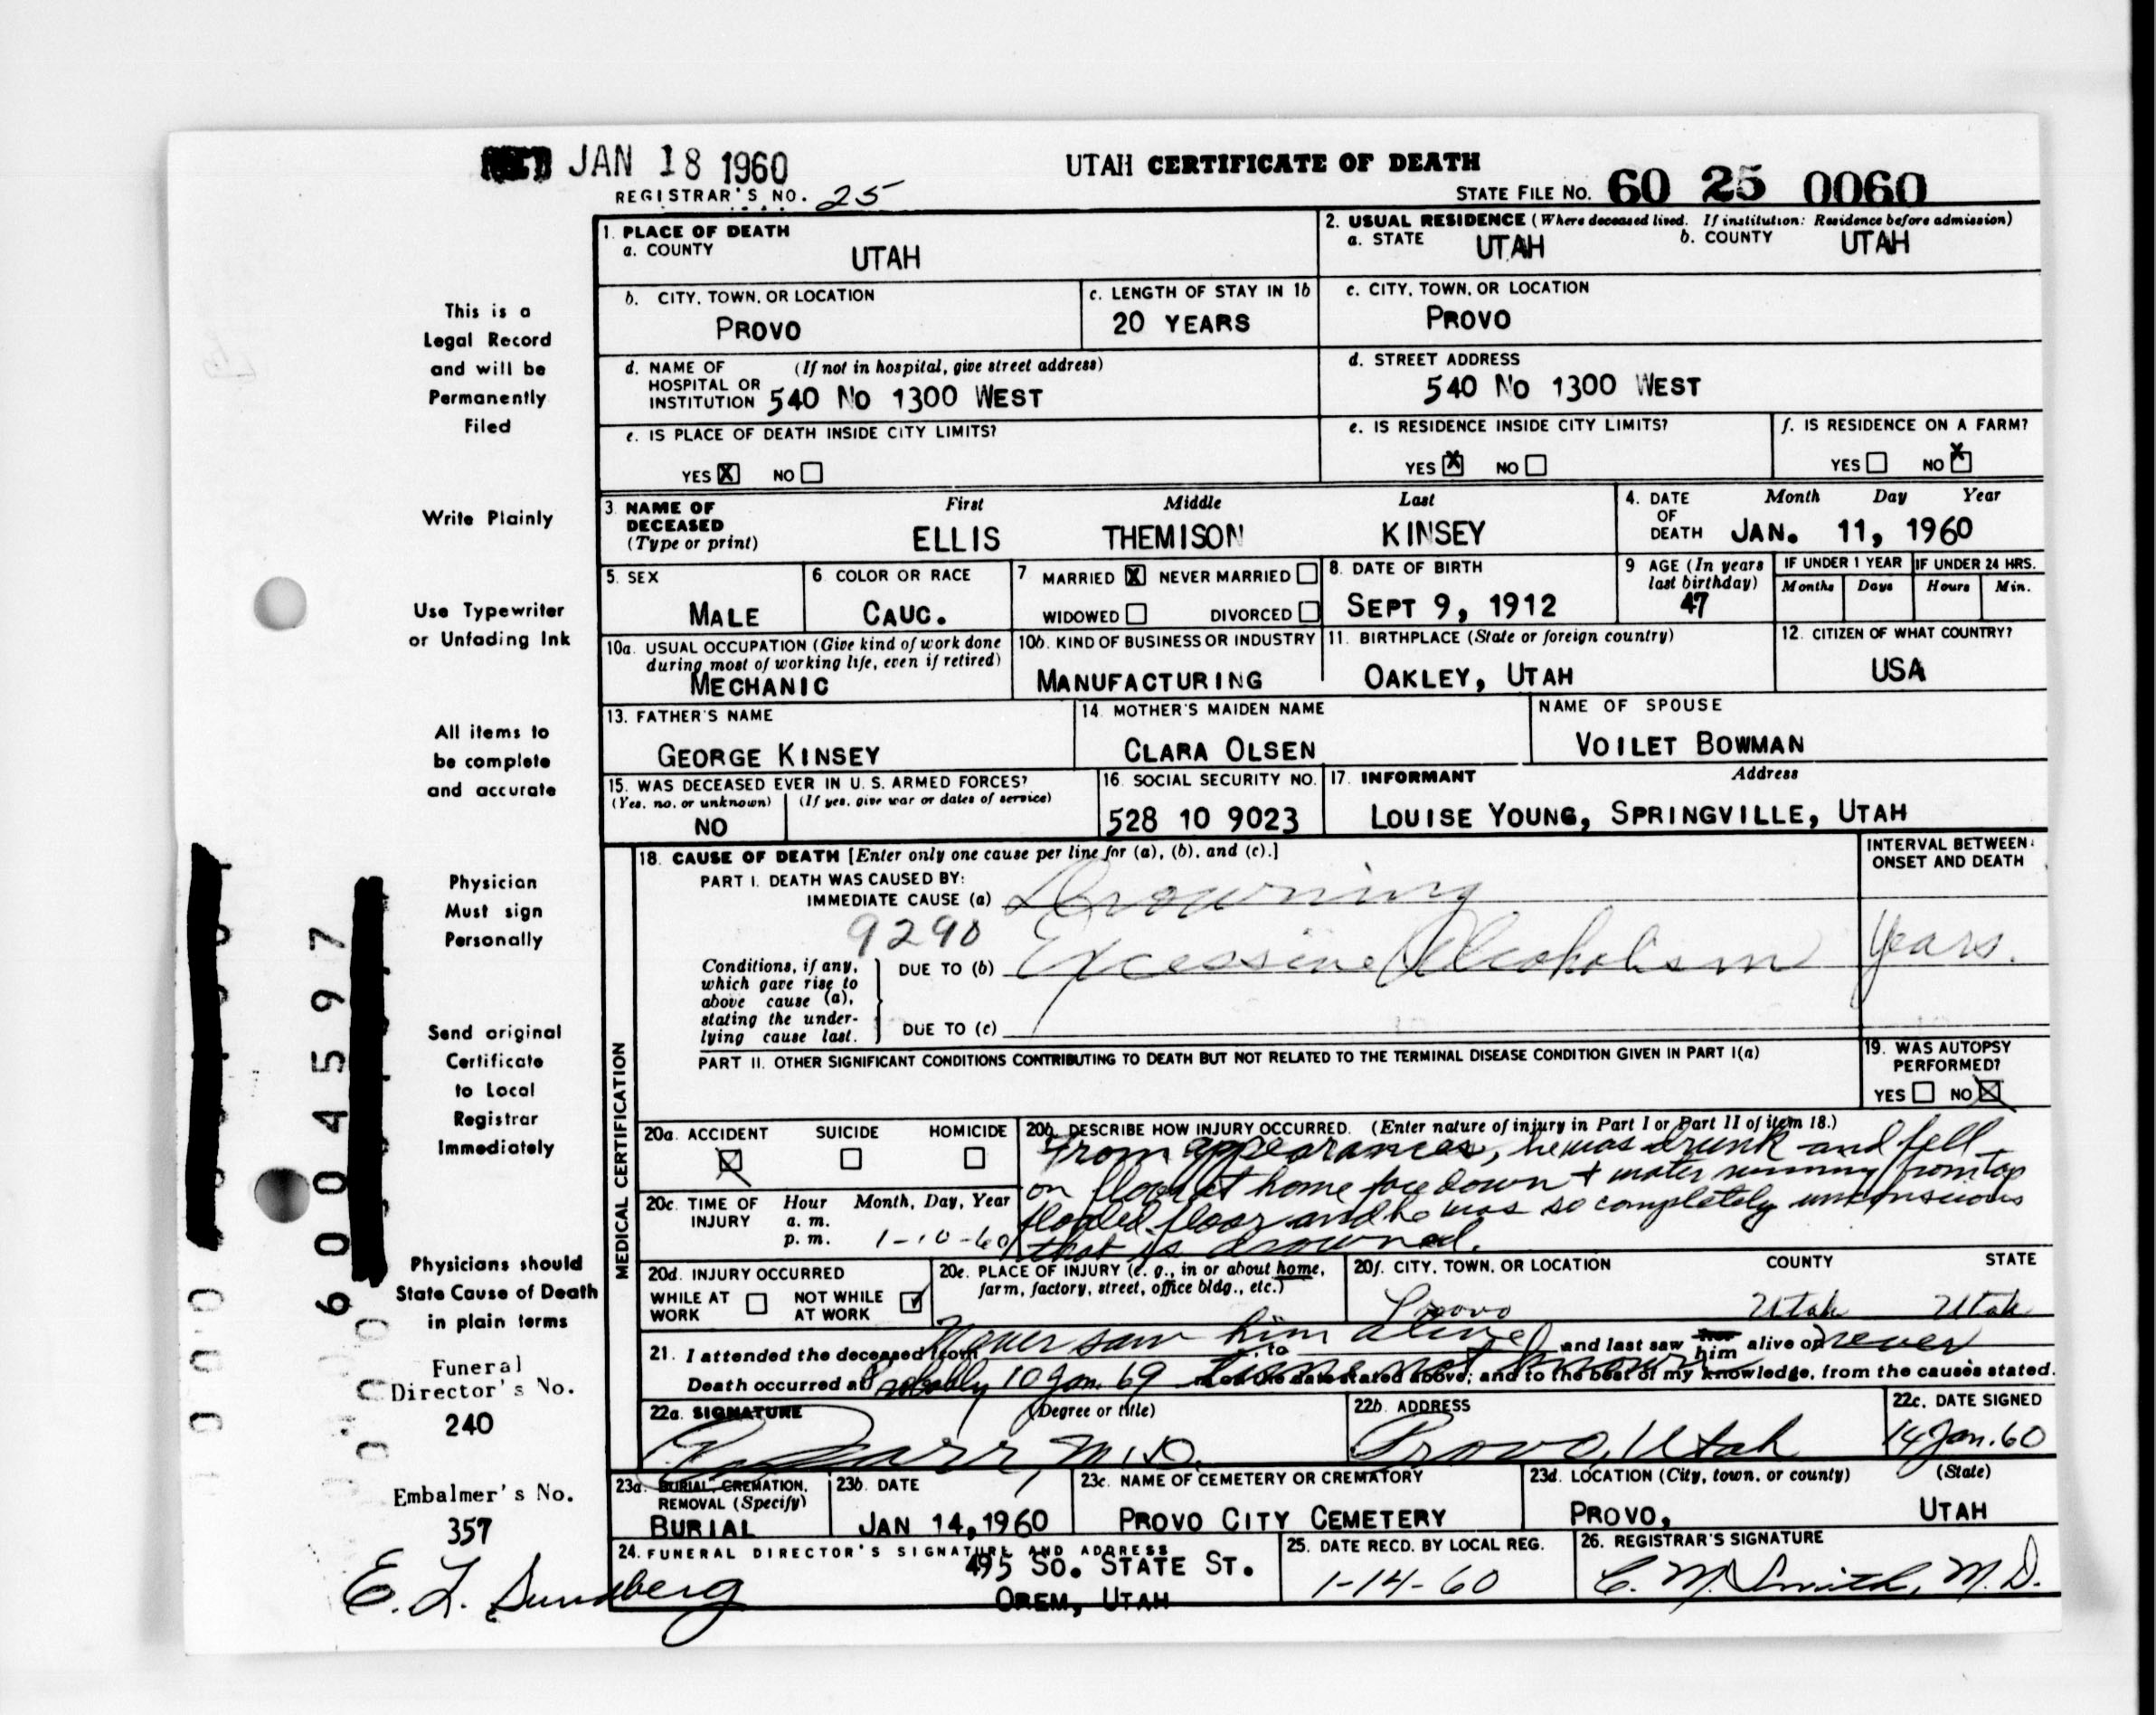 JAN 18 1960
UTAH CERTIFICATE OF DEATH
REGISTRAR'S NO. 25
STATE FILE NO. 60 25 0060
This is a
Legal Record
and will be
Permanently
Filed
Write Plainly
Use Typewriter
or Unfading Ink
All items to
be complete
and accurate
Physician
Must sign
Personally
Send original
Certificate
to Local
Registrar
Immediately
Physicians should
State Cause of Death
in plain terms
Funeral
Director's No.
240
Embalmer's No.
357
E. L. Sundberg
6004597
1. PLACE OF DEATH
a. COUNTY UTAH
2. USUAL RESIDENCE (Where deceased lived. If institution: Residence before admission)
a. STATE UTAH b. COUNTY UTAH
b. CITY, TOWN, OR LOCATION PROVO
c. LENGTH OF STAY IN 1b 20 YEARS
c. CITY, TOWN, OR LOCATION PROVO
d. NAME OF HOSPITAL OR INSTITUTION (If not in hospital, give street address) 540 NO 1300 WEST
d. STREET ADDRESS 540 NO 1300 WEST
e. IS PLACE OF DEATH INSIDE CITY LIMITS?
YES X NO
e. IS RESIDENCE INSIDE CITY LIMITS?
YES X NO
f. IS RESIDENCE ON A FARM?
YES NO X
3. NAME OF DECEASED (Type or print)
First Middle Last
ELLIS THEMISON KINSEY
4. DATE OF DEATH Month Day Year
JAN. 11, 1960
5. SEX MALE
6 COLOR OR RACE CAUC.
7 MARRIED X NEVER MARRIED
WIDOWED DIVORCED
8. DATE OF BIRTH SEPT 9, 1912
9 AGE (In years last birthday) 47
IF UNDER 1 YEAR Months Days
IF UNDER 24 HRS. Hours Min.
10a. USUAL OCCUPATION (Give kind of work done during most of working life, even if retired) MECHANIC
10b. KIND OF BUSINESS OR INDUSTRY MANUFACTURING
11. BIRTHPLACE (State or foreign country) OAKLEY, UTAH
12. CITIZEN OF WHAT COUNTRY? USA
13. FATHER'S NAME GEORGE KINSEY
14. MOTHER'S MAIDEN NAME CLARA OLSEN
NAME OF SPOUSE VOILET BOWMAN
15. WAS DECEASED EVER IN U. S. ARMED FORCES?
(Yes, no, or unknown) (If yes, give war or dates of service)
NO
16. SOCIAL SECURITY NO. 528 10 9023
17. INFORMANT Address
LOUISE YOUNG, SPRINGVILLE, UTAH
MEDICAL CERTIFICATION
18. CAUSE OF DEATH [Enter only one cause per line for (a), (b), and (c).]
INTERVAL BETWEEN ONSET AND DEATH
PART I. DEATH WAS CAUSED BY:
IMMEDIATE CAUSE (a) Drowning
9290
Conditions, if any, which gave rise to above cause (a), stating the underlying cause last.
DUE TO (b) Excessive Alcoholism Years.
DUE TO (c)
PART II. OTHER SIGNIFICANT CONDITIONS CONTRIBUTING TO DEATH BUT NOT RELATED TO THE TERMINAL DISEASE CONDITION GIVEN IN PART I(a)
19. WAS AUTOPSY PERFORMED?
YES NO X
20a. ACCIDENT X SUICIDE HOMICIDE
20b. DESCRIBE HOW INJURY OCCURRED. (Enter nature of injury in Part I or Part II of item 18.)
From appearances, he was drunk and fell
on floor at home face down + water running from tap
flooded floor and he was so completely unconscious
that is drowned.
20c. TIME OF INJURY Hour Month, Day, Year
a. m.
p. m. 1-10-60
20d. INJURY OCCURRED
WHILE AT WORK NOT WHILE AT WORK ✓
20e. PLACE OF INJURY (e. g., in or about home, farm, factory, street, office bldg., etc.)
20f. CITY, TOWN, OR LOCATION COUNTY STATE
Provo Utah Utah
21. I attended the deceased from Never saw him alive, to and last saw her him alive on never
Death occurred at Probably 10 Jan. 69 time not known m on the date stated above; and to the best of my knowledge, from the causes stated.
22a. SIGNATURE (Degree or title)
M.D.
22b. ADDRESS Provo, Utah
22c. DATE SIGNED 14 Jan. 60
23a. BURIAL, CREMATION, REMOVAL (Specify) BURIAL
23b. DATE JAN 14, 1960
23c. NAME OF CEMETERY OR CREMATORY PROVO CITY CEMETERY
23d. LOCATION (City, town, or county) (State)
PROVO, UTAH
24. FUNERAL DIRECTOR'S SIGNATURE AND ADDRESS
495 SO. STATE ST.
OREM, UTAH
25. DATE RECD. BY LOCAL REG. 1-14-60
26. REGISTRAR'S SIGNATURE
C. M. Smith, M.D.